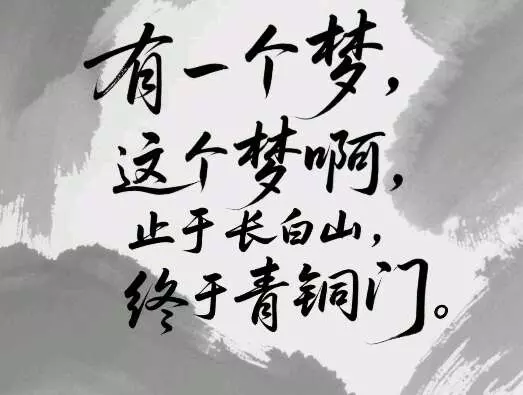 有一个梦，
这个梦啊，
止于长白山，
终于青铜门。